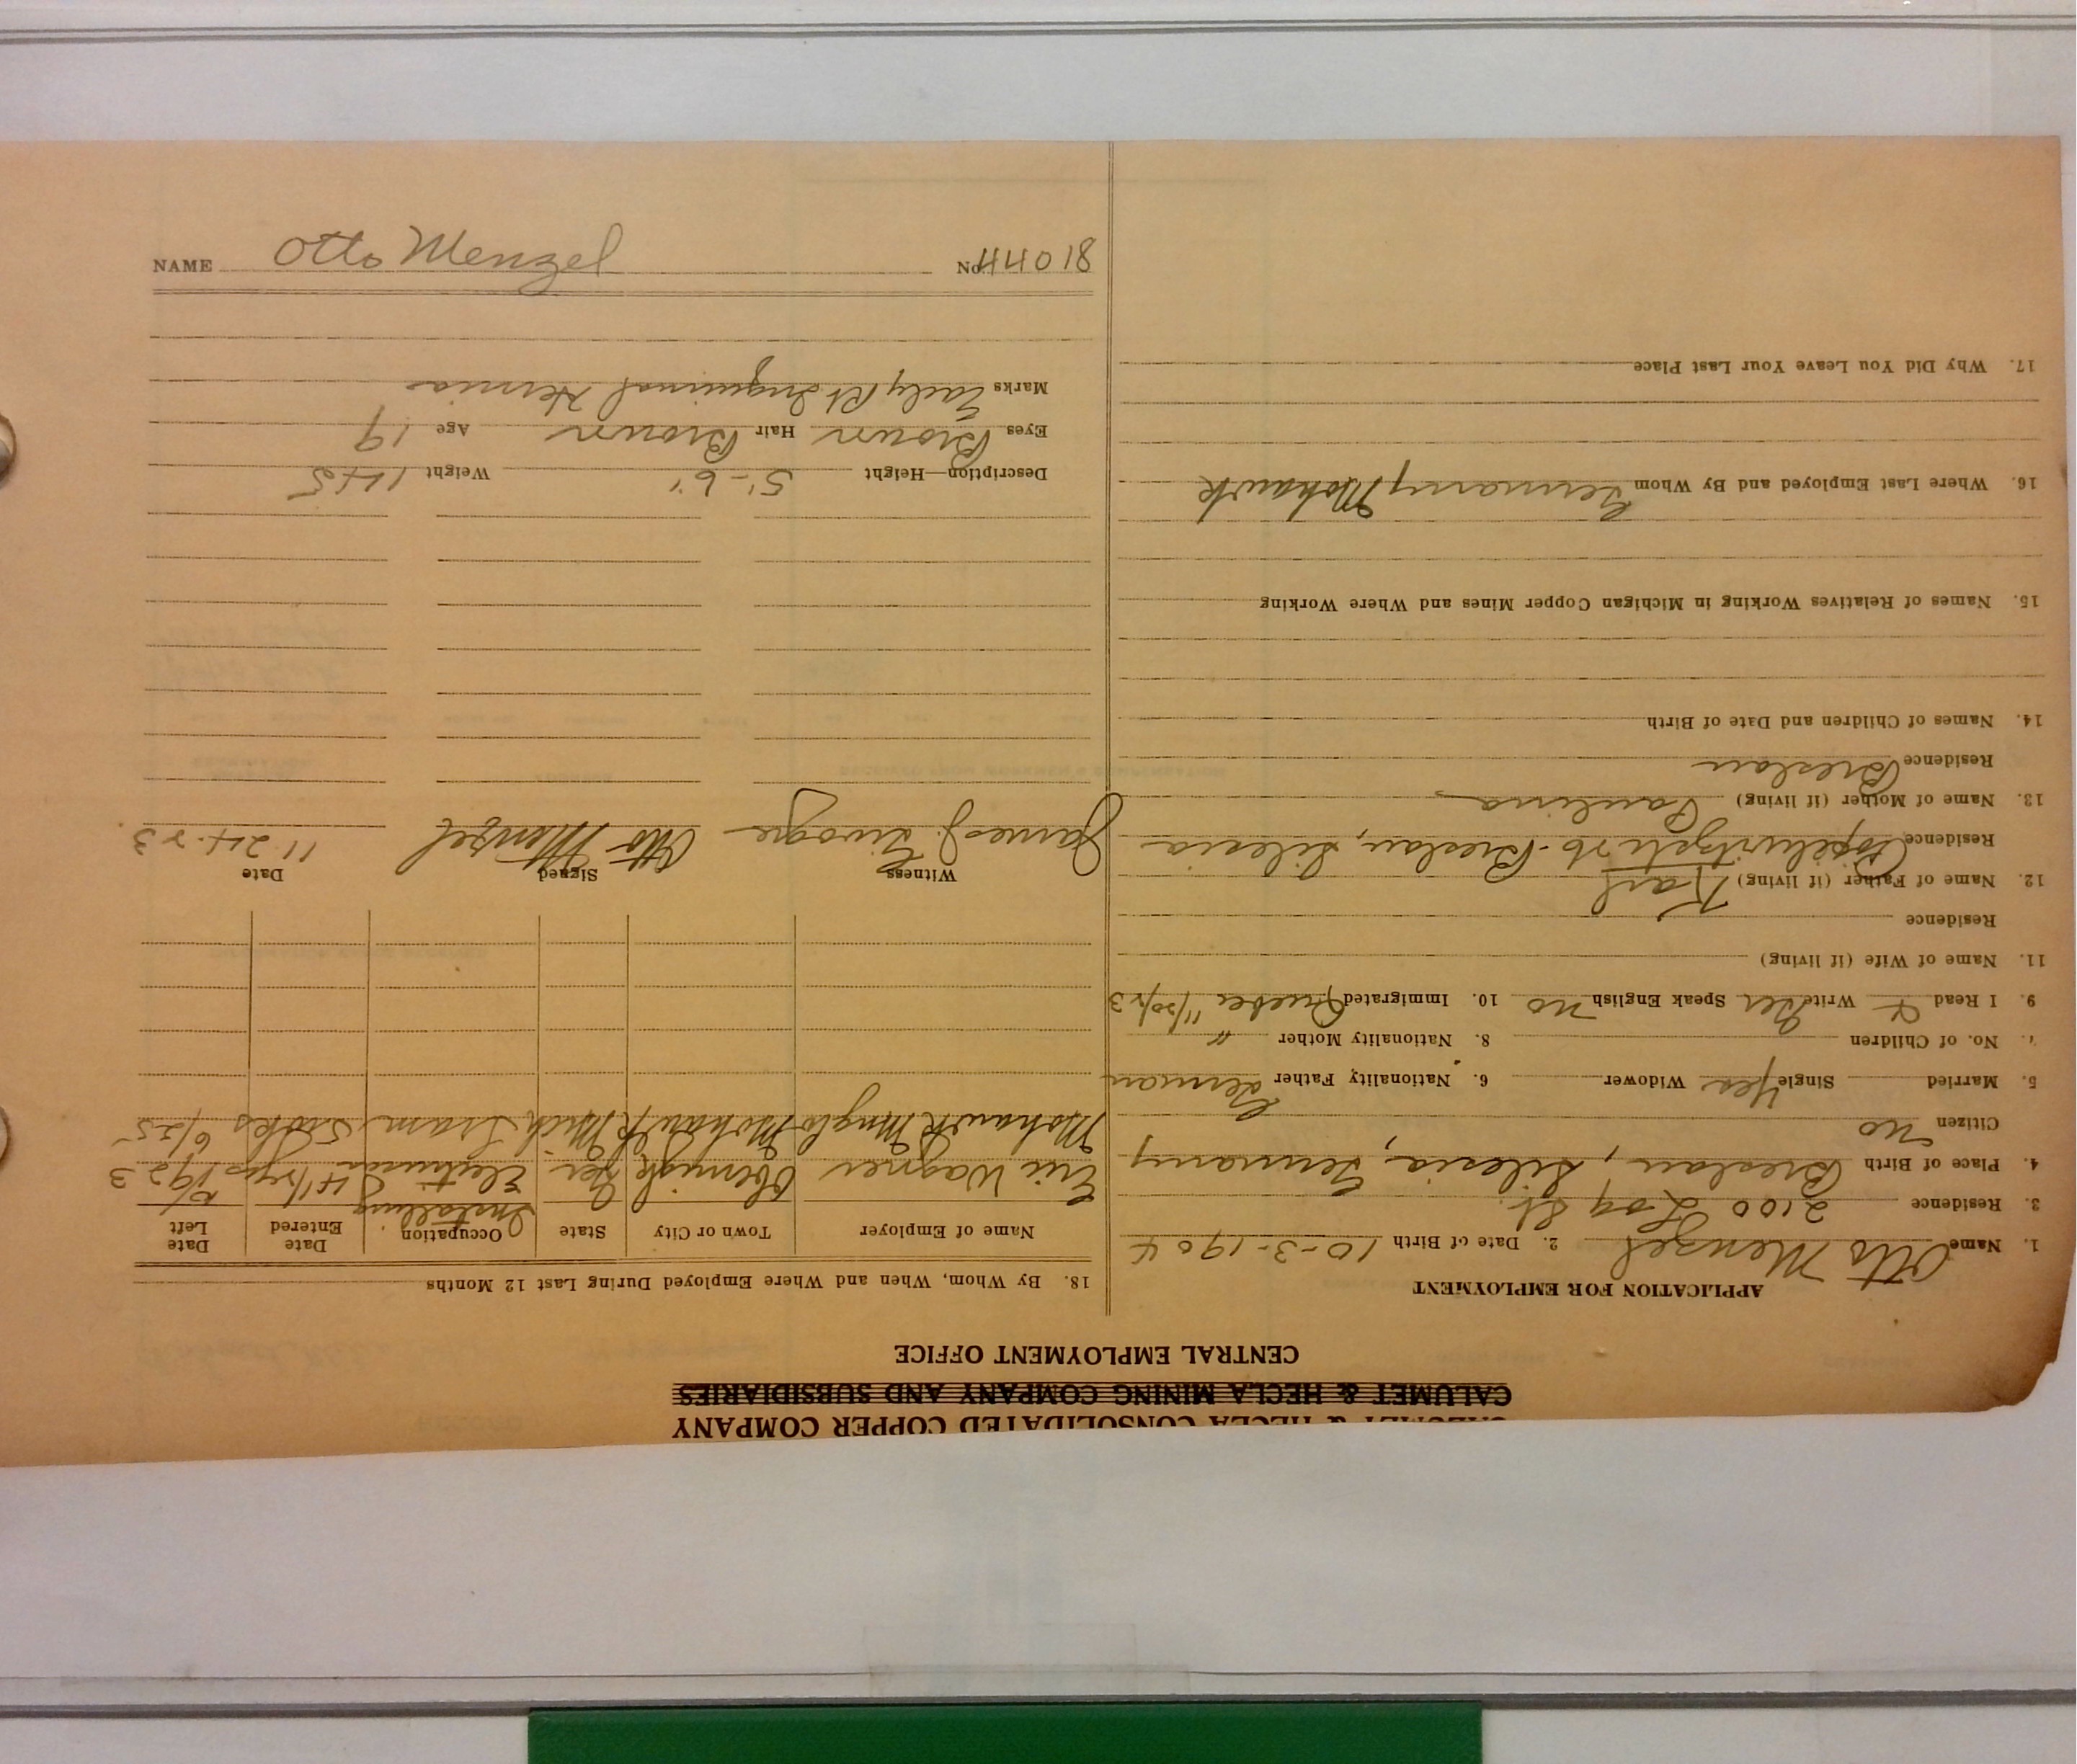 CALUMET & HECLA CONSOLIDATED COPPER COMPANY
CALUMET & HECLA MINING COMPANY AND SUBSIDIARIES
CENTRAL EMPLOYMENT OFFICE
APPLICATION FOR EMPLOYMENT
1. Name Otto Menzel 2. Date of Birth 10-3-1904
3. Residence 2100 Log St.
4. Place of Birth Breslau, Silesia, Germany
Citizen no
5. Married Single Yes Widower 6. Nationality Father German
7. No. of Children 8. Nationality Mother "
9. I Read & Write Ger Speak English no 10. Immigrated Quebec 11/20/23
11. Name of Wife (if living)
Residence
12. Name of Father (if living) Karl
Residence Breslau, Silesia
13. Name of Mother (if living) Paulina
Residence Breslau
14. Names of Children and Date of Birth
15. Names of Relatives Working in Michigan Copper Mines and Where Working
16. Where Last Employed and By Whom Germany Mohawk
17. Why Did You Leave Your Last Place
18. By Whom, When and Where Employed During Last 12 Months
Name of Employer Town or City State Occupation Date Entered Date Left
Installing
Eric Wagner Obernigk Ger Electrician 4 1/2 yrs 1923
Mohawk Mng Co Mohawk Mich Tram 6/25
Witness Signed Date
James J. Otto Menzel 11-24-23
Description—Height 5'-6" Weight 145
Eyes Brown Hair Brown Age 19
Marks Early Rt Inguinal Hernia
NAME Otto Menzel No.